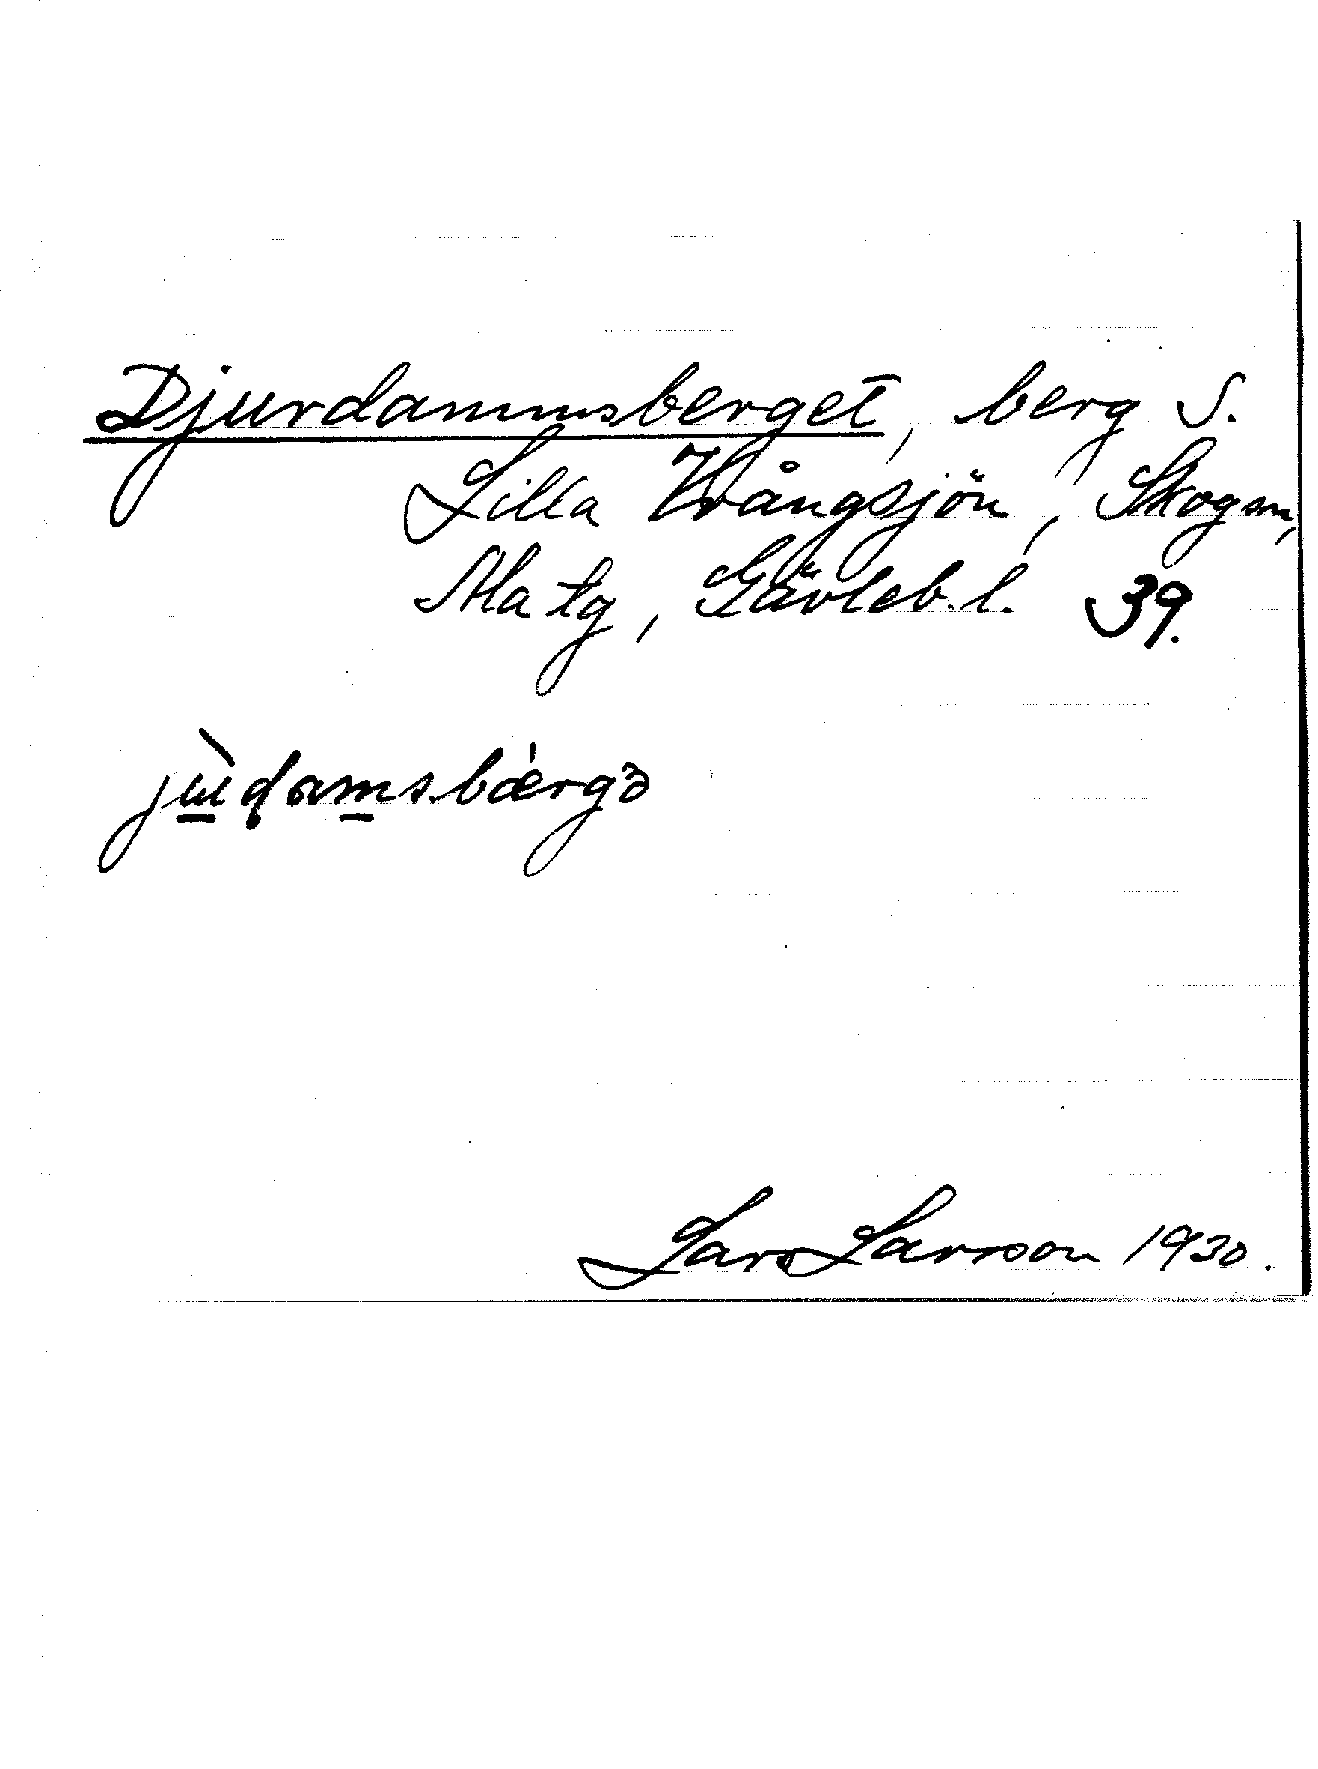 Djurdammsberget, berg S.
Lilla Vrångsjön, Skogsm,
Ala tg, Gävleb. l. 39.
jùɖamsbærgə
Lars Larsson 1930.